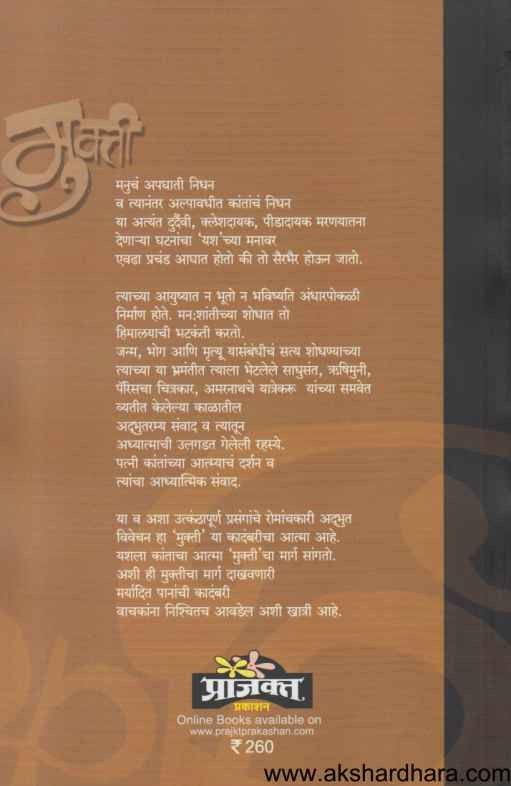 मुक्ती
मनुचं अपघाती निधन
व त्यानंतर अल्पावधीत कांतांचं निधन
या अत्यंत दुर्दैवी, क्लेशदायक, पीडादायक मरणयातना
देणाऱ्या घटनांचा ‘यश’च्या मनावर
एवढा प्रचंड आघात होतो की तो सैरभैर होऊन जातो.
त्याच्या आयुष्यात न भूतो न भविष्यति अंधारपोकळी
निर्माण होते. मन:शांतीच्या शोधात तो
हिमालयाची भटकंती करतो.
जन्म, भोग आणि मृत्यू यासंबंधीचं सत्य शोधण्याच्या
त्याच्या या भ्रमंतीत त्याला भेटलेले साधुसंत, ऋषिमुनी,
पॅरिसचा चित्रकार, अमरनाथचे यात्रेकरू यांच्या समवेत
व्यतीत केलेल्या काळातील
अद्भुतरम्य संवाद व त्यातून
अध्यात्माची उलगडत गेलेली रहस्ये.
पत्नी कांतांच्या आत्म्याचं दर्शन व
त्यांचा आध्यात्मिक संवाद.
या व अशा उत्कंठापूर्ण प्रसंगांचे रोमांचकारी अद्भुत
विवेचन हा ‘मुक्ती’ या कादंबरीचा आत्मा आहे.
यशला कांताचा आत्मा ‘मुक्ती’चा मार्ग सांगतो.
अशी ही मुक्तीचा मार्ग दाखवणारी
मर्यादित पानांची कादंबरी
वाचकांना निश्चितच आवडेल अशी खात्री आहे.
प्राजक्त
प्रकाशन
Online Books available on
www.prajktprakashan.com
₹260
www.akshardhara.com